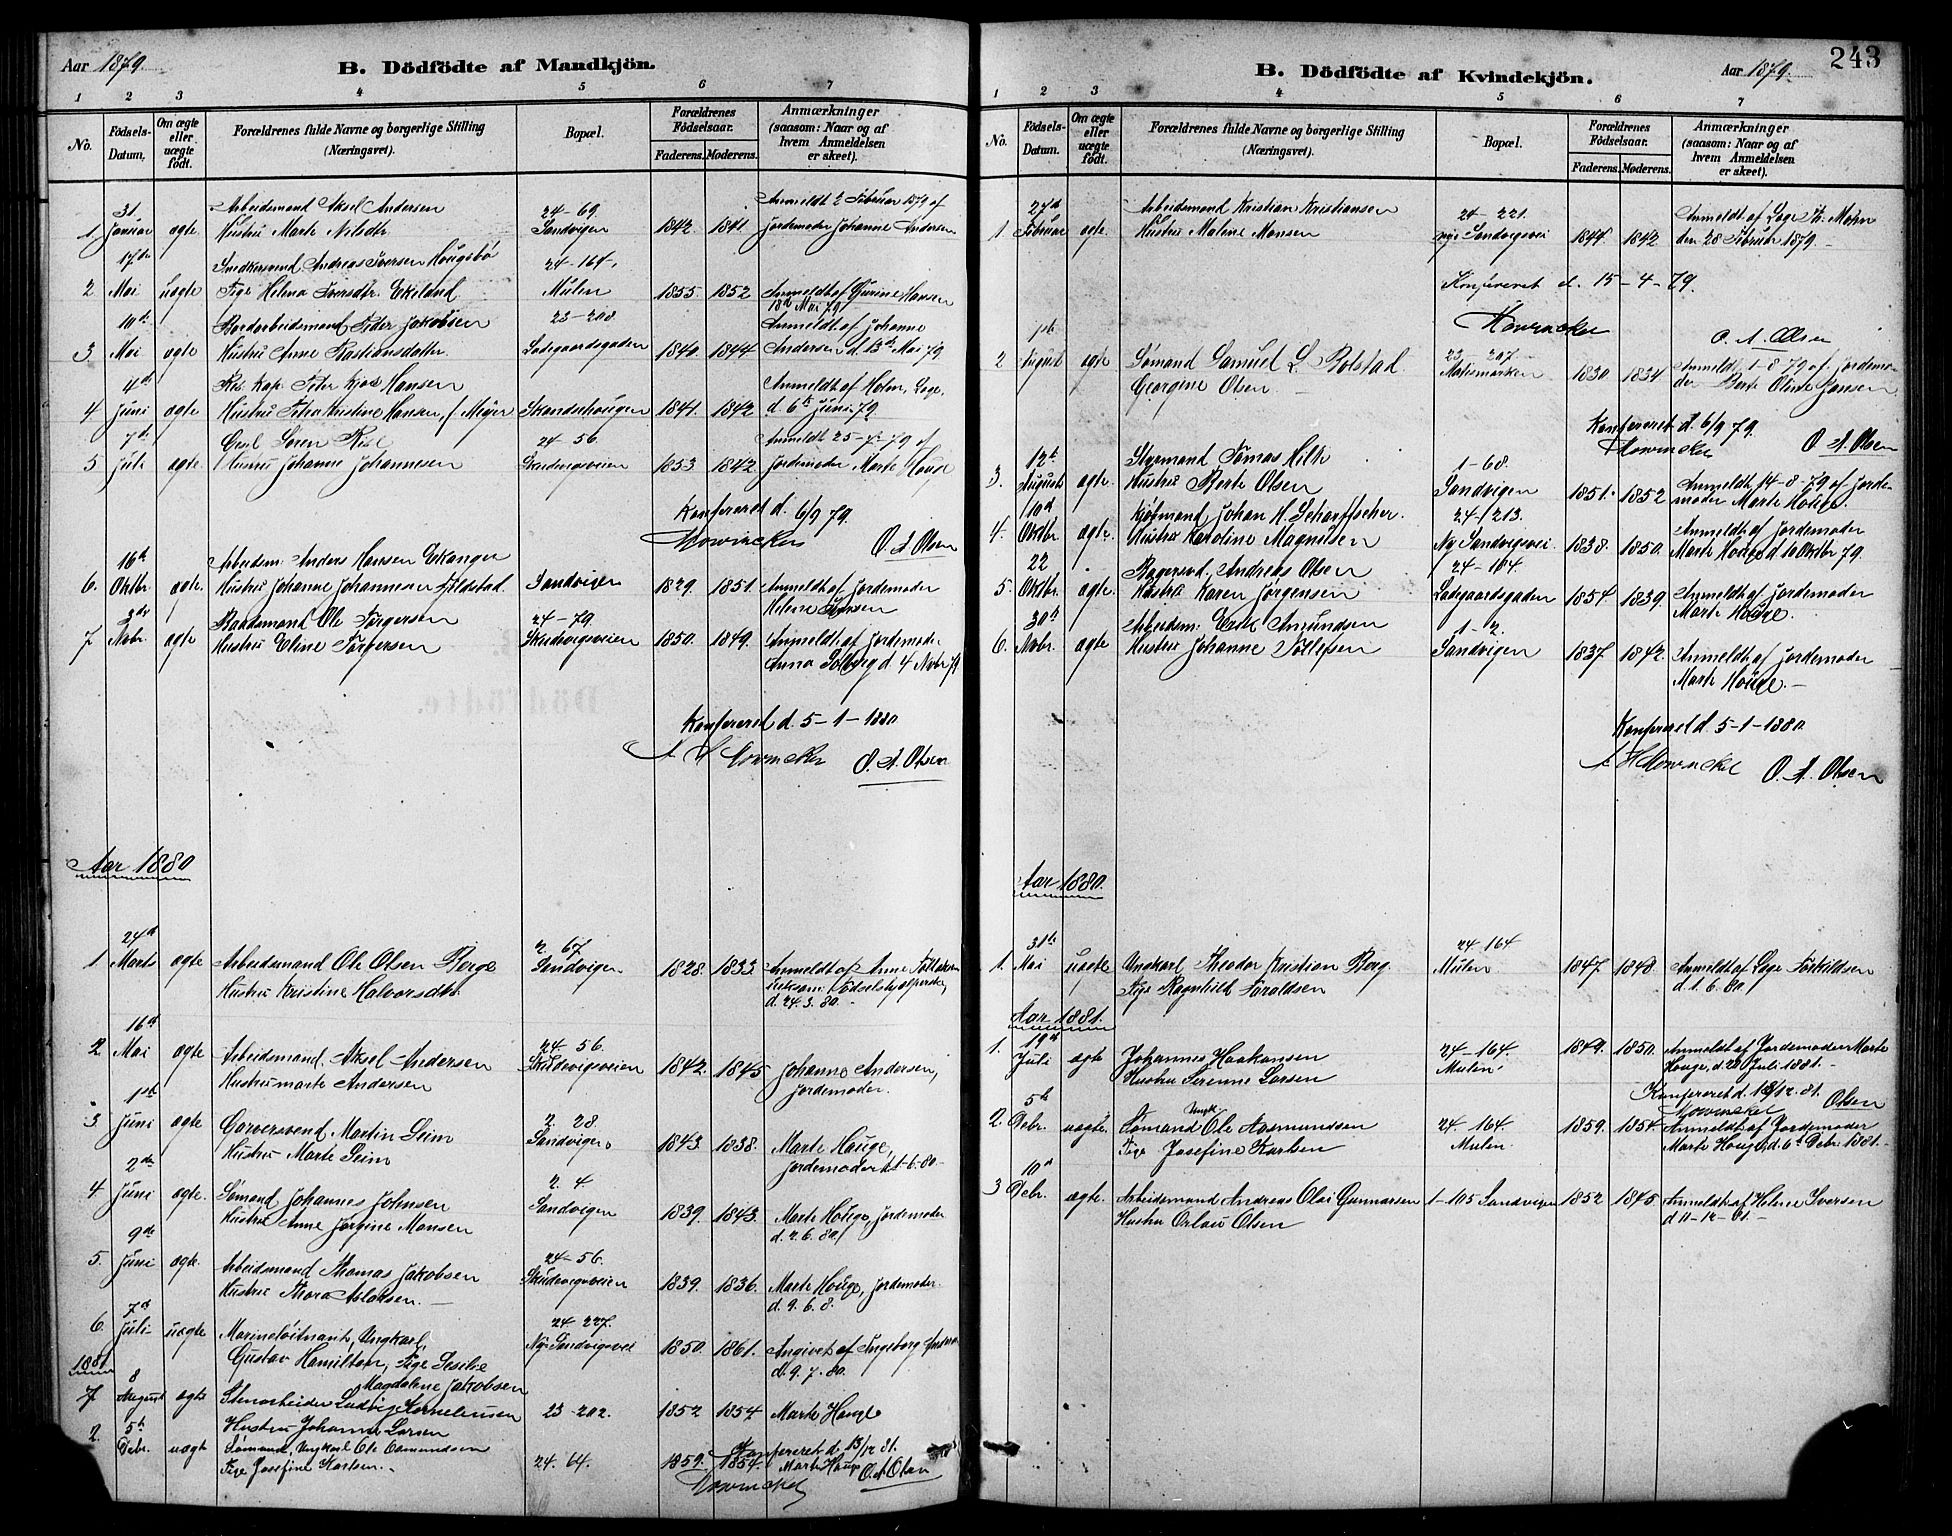 Aar 1879.
B. Dödfödte af Mandkjön.
1 2 3 4 5 6 7
No. Födsels-Datum. Om ægte eller uægte födt. Forældrenes fulde Navne og borgerlige Stilling (Næringsvei). Bopæl. Forældrenes Födselsaar. Faderens. Moderens. Anmærkninger (saasom: Naar og af hvem Anmeldelsen er skeet).
31. Arbeidsmand Aksel Andersen 24-69. Anmeldt 2 Februar 1879 af
1 Januar ægte Hustru Marte Nilsdtr Sandvigen 1842 1841 Jordemoder Johanne Andersen
17de Smedkersvend Andreas Iversen Hougsbö 24-164.
2 Mai uægte Pige Helena Iversdtr. Ekeland Mulen 1855 1852 Anmeldt af Gurine Hansen
18de Mai 79
10de Bordarbeidsmand Peder Jakobsen 23-208 Anmeldt af Johanne
3 Mai ægte Hustru Anne Bastiansdattr Ladegaardsgaden 1840 1844 Andersen d. 13de Mai 79
4de Peder Hansen Anmeldt af Holm, Læge,
4 Juni ægte Hustru Petra Kristine Hansen f. Meyer Skandsehougen 1841 1842 d. 6te Juni 79
7de Carl Sören 24-56. Anmeldt 25-7-79 af
5 Juli ægte Hustru Johanne Johannesen Skudevigsveien 1853 1842 Jordemoder Marte Houge
Konfereret d. 6/9 79.
Mowinckel O. A. Olsen
16de Arbeidsm. Anders Hansen Ekanger
6. Oktbr. ægte. Hustru Johanne Johannesen Fjeldstad. Sandvigen 1829 1851. Anmeldt af Jordemoder
Helene Iversen
3die Baadsmand Ole Törgersen 24-79.
7 Novbr. ægte Hustru Eline Törgersen Skudevigsveien 1850. 1849. Anmeldt af Jordemoder
Anna Solberg d. 4 Novbr 79
Konfereret d. 5-1-1880
A H Mowinckel O. A. Olsen
Aar 1880
24de 2. 67.
1 Marts ægte Arbeidsmand Ole Olsen Berge Sandvigen 1828. 1833. Anmeldt af Anne
Hustru Kristine Halvorsdtr. Födselshjælperske,
d. 24.3.80.
16de 24-56.
2 Mai ægte Arbeidsmand Aksel Andersen Skudevigsveien 1842. 1845 Johanne Andersen,
Hustru Marte Andersen Jordemoder.
1ste 2. 28.
3 Juni ægte Garversvend Martin Seim Sandvigen 1843 1838. Marte Houge,
Hustru Marte Seim Jordemoder d. 1-6-80
2den 2. 4
4 Juni ægte. Sömand Johannes Johnsen Sandvigen 1839. 1843. Marte Houge, Jordemoder
Hustru Anne Jorgine Monsen d. 2.6.80.
9de 24-56.
5. Juni ægte. Arbeidsmand Thomas Jakobsen Skudevigsveien 1839. 1836. Marte Houge, Jordemoder.
Hustru Thora Aslaksen. d. 9.6.8.
7de 24-227.
6. Juli uægte Marineloitnant, Ungkarl, Nye Sandvigsvei 1850. 1861. Angivet af Ingeborg
Gustav Hamilton, Pige Seselie d. 9.7.80.
1881 8 Magdalene Jakobsen
7 August ægte Stenarbeider Ludvig Korneliussen 23-202. 1852 1854 Marte Houge
Hustru Johanne Larsen
2. 5te Debr. uægte Sömand, Ungkarl Ole Osmundsen 24.64. 1859. 1854. Konfereret d. 13/12 81.
Pige Josefine Karlsen. Marte Houge O. A. Olsen
Mowinckel
243
B. Dödfödte af Kvindekjön.
Aar 1879.
1 2 3 4 5 6 7
No. Födsels-Datum. Om ægte eller uægte födt. Forældrenes fulde Navne og borgerlige Stilling (Næringsvei). Bopæl. Forældrenes Födselsaar. Faderens. Moderens. Anmærkninger (saasom: Naar og af hvem Anmeldelsen er skeet).
27de Arbeidsmand Kristian Kristiansen 24-221. Anmeldt af Læge Th. Mohn
1 Februar ægte. Hustru Maline Monsen nye Sandvigsvei 1844 1842 den 28 Februar 1879.
Konfereret d. 15-4-79.
Mowinckel O. A. Olsen
1ste 23-207.
2 August ægte Sömand Samuel L. Rolstad. Malesmarken 1830 1834 Anmeldt 1-8-79 af Jordemo-
Georgine Olsen der Berte Oline Jansen
Konfereret d. 6/9 79.
Mowinckel O. A. Olsen
12te Styrmand Tomas Hilt 1-68.
3. August ægte Hustru Berte Olsen Sandvigen 1851. 1852 Anmeldt 14-8-79 af Jorde-
moder Marte Houge
10de Kjöbmand Johan H. Scharffscher. 24/213.
4. Oktbr ægte Hustru Karoline Magnussen Ny Sandvigsvei. 1838. 1850. Anmeldt af Jordemoder
Marte Houge d. 10 Oktbr 79.
22 Bagersvd. Andreas Olsen 24-164.
5 Oktbr. ægte. Hustru Karen Jörgensen Ladegaardsgaden 1854 1839. Anmeldt af Jordemoder
Marte Houge.
30te Arbeidsm. Erik Amundsen 1-2.
6. Novbr. ægte Hustru Johanne Tollefsen Sandvigen 1837 1842. Anmeldt af Jordemoder
Marte Houge.
Konfereret d. 5-1-1880.
A H Mowinckel O. A. Olsen
Aar 1880.
31te 24-164
1. Mai uægte Ungkarl Theodor Kristian Berg. Mulen 1847. 1848. Anmeldt af Læge Torkildsen
Pige Ragnhild Haraldsen d. 1.6.80
Aar 1881.
19de
1. Juli ægte Johannes Haakonsen 24-164. Mulen 1849. 1850. Anmeldt af Jordemoder Marte
Hustru Serenne Larsen Houge, d. 20 Juli 1881.
Konfereret d. 13/12.81.
Mowinckel Olsen
5te Ungk.
2. Debr. uægte. Sömand Ole Aasmundssen 24-164 1859. 1854. Anmeldt af Jordemoder
Pige Josefine Karlsen Mulen. Marte Houge, d. 6te Debr. 1881.
10de
3 Debr. ægte. Arbeidsmand Andreas Olai Gunnarsen 1-105 Sandvigen 1852 1845. Anmeldt af Helene Iversen
Hustru Orlau Olsen d 11-12-81.